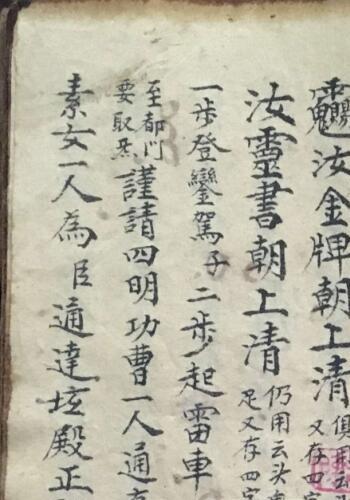 汝金牌朝上清
又存四
汝靈書朝上清
仍用云头
足又存四
一步登鑾駕子二步起雷車
至都门
要取炁
謹請四明功曹一人通
素女一人為臣通達垓殿正